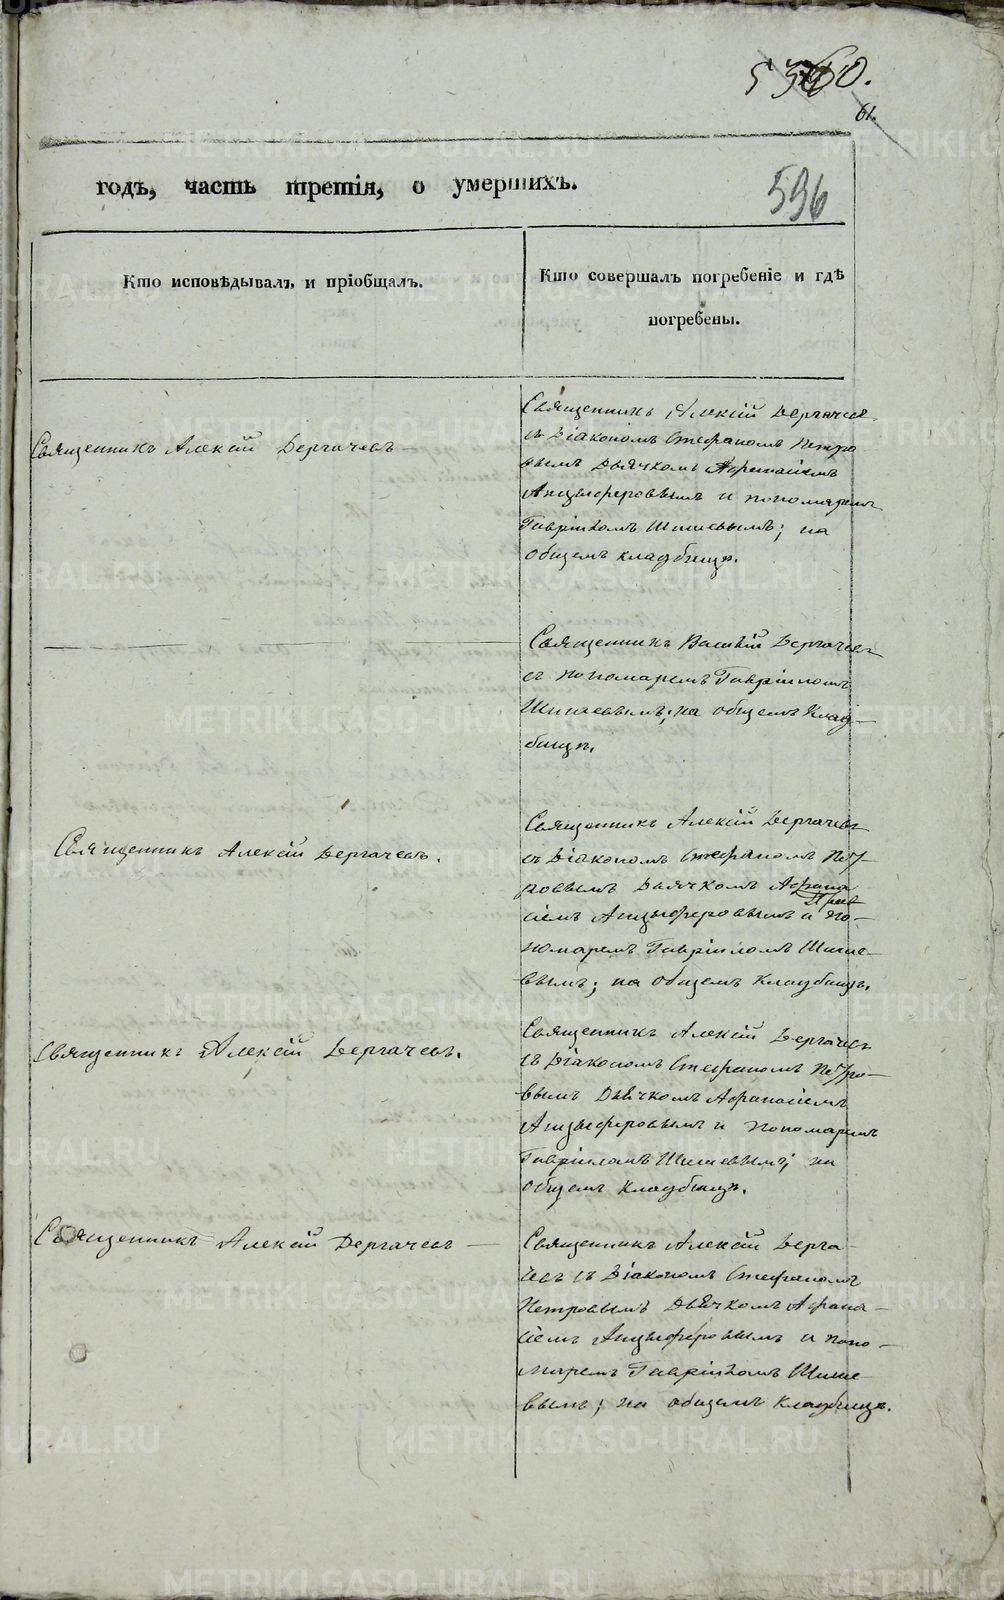 61.
596
годъ, часть третія, о умершихъ.
Кто исповѣдывалъ и пріобщалъ.
Кто совершалъ погребеніе и гдѣ
погребены.
Священникъ Алексій Дергачевъ
Священникъ Алексій Дергачевъ
съ Діакономъ Стефаномъ Петро
вымъ Дьячкомъ Афанасіемъ
Анцыферовымъ и пономаремъ
Гавріиломъ Шишевымъ; на
общемъ кладбищѣ.
Священникъ Василій Дергачевъ
съ пономаремъ Гавріиломъ
Шишевымъ; на общемъ Клад-
бищѣ.
Священникъ Алексій Дергачевъ.
Священникъ Алексій Дергачевъ
съ Діакономъ Стефаномъ Пет-
ровымъ Дьячкомъ Афана
сіемъ Анцыферовымъ и по-
номаремъ Гавріиломъ Шише-
вымъ; на общемъ Кладбищѣ.
Священникъ Алексій Дергачевъ.
Священникъ Алексій Дергачевъ
съ Діакономъ Стефаномъ Петро-
вымъ Дьячкомъ Афанасіемъ
Анцыферовымъ и пономаремъ
Гавріиломъ Шишевымъ; на
общемъ Кладбищѣ.
Священникъ Алексій Дергачевъ
Священникъ Алексій Дерга-
чевъ съ Діакономъ Стефаномъ
Петровымъ Дьячкомъ Афана-
сіемъ Анцыферовымъ и поно-
маремъ Гавріиломъ Шише
вымъ; на общемъ Кладбищѣ.
METRIKI.GASO-URAL.RU